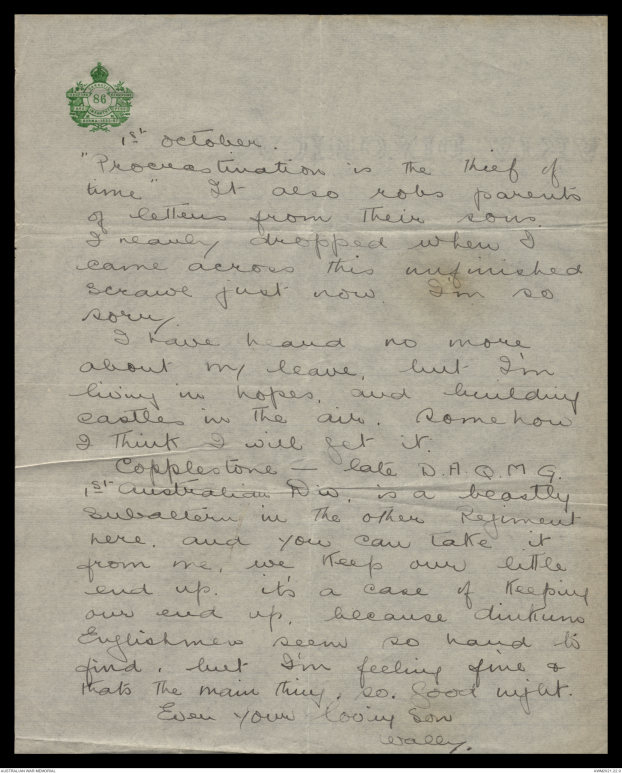 86
1st October.
"Procrastination is the thief of
time" It also robs parents
of letters from their sons.
I nearly dropped when I
came across this unfinished
scrawl just now. I'm so
sorry
I have heard no more
about my leave, but I'm
living in hopes, and building
castles in the air. Somehow
I think I will get it.
Copplestone – late D.A.Q.M.G.
1st Australian Div. is a beastly
subaltern in the other Regiment
here. and you can take it
from me, we keep our little
end up. it's a case of keeping
our end up, because dinkum
Englishmen seem so hard to
find, but I'm feeling fine &
thats the main thing. so. Good night.
Ever your loving Son
Wally.
AUSTRALIAN WAR MEMORIAL